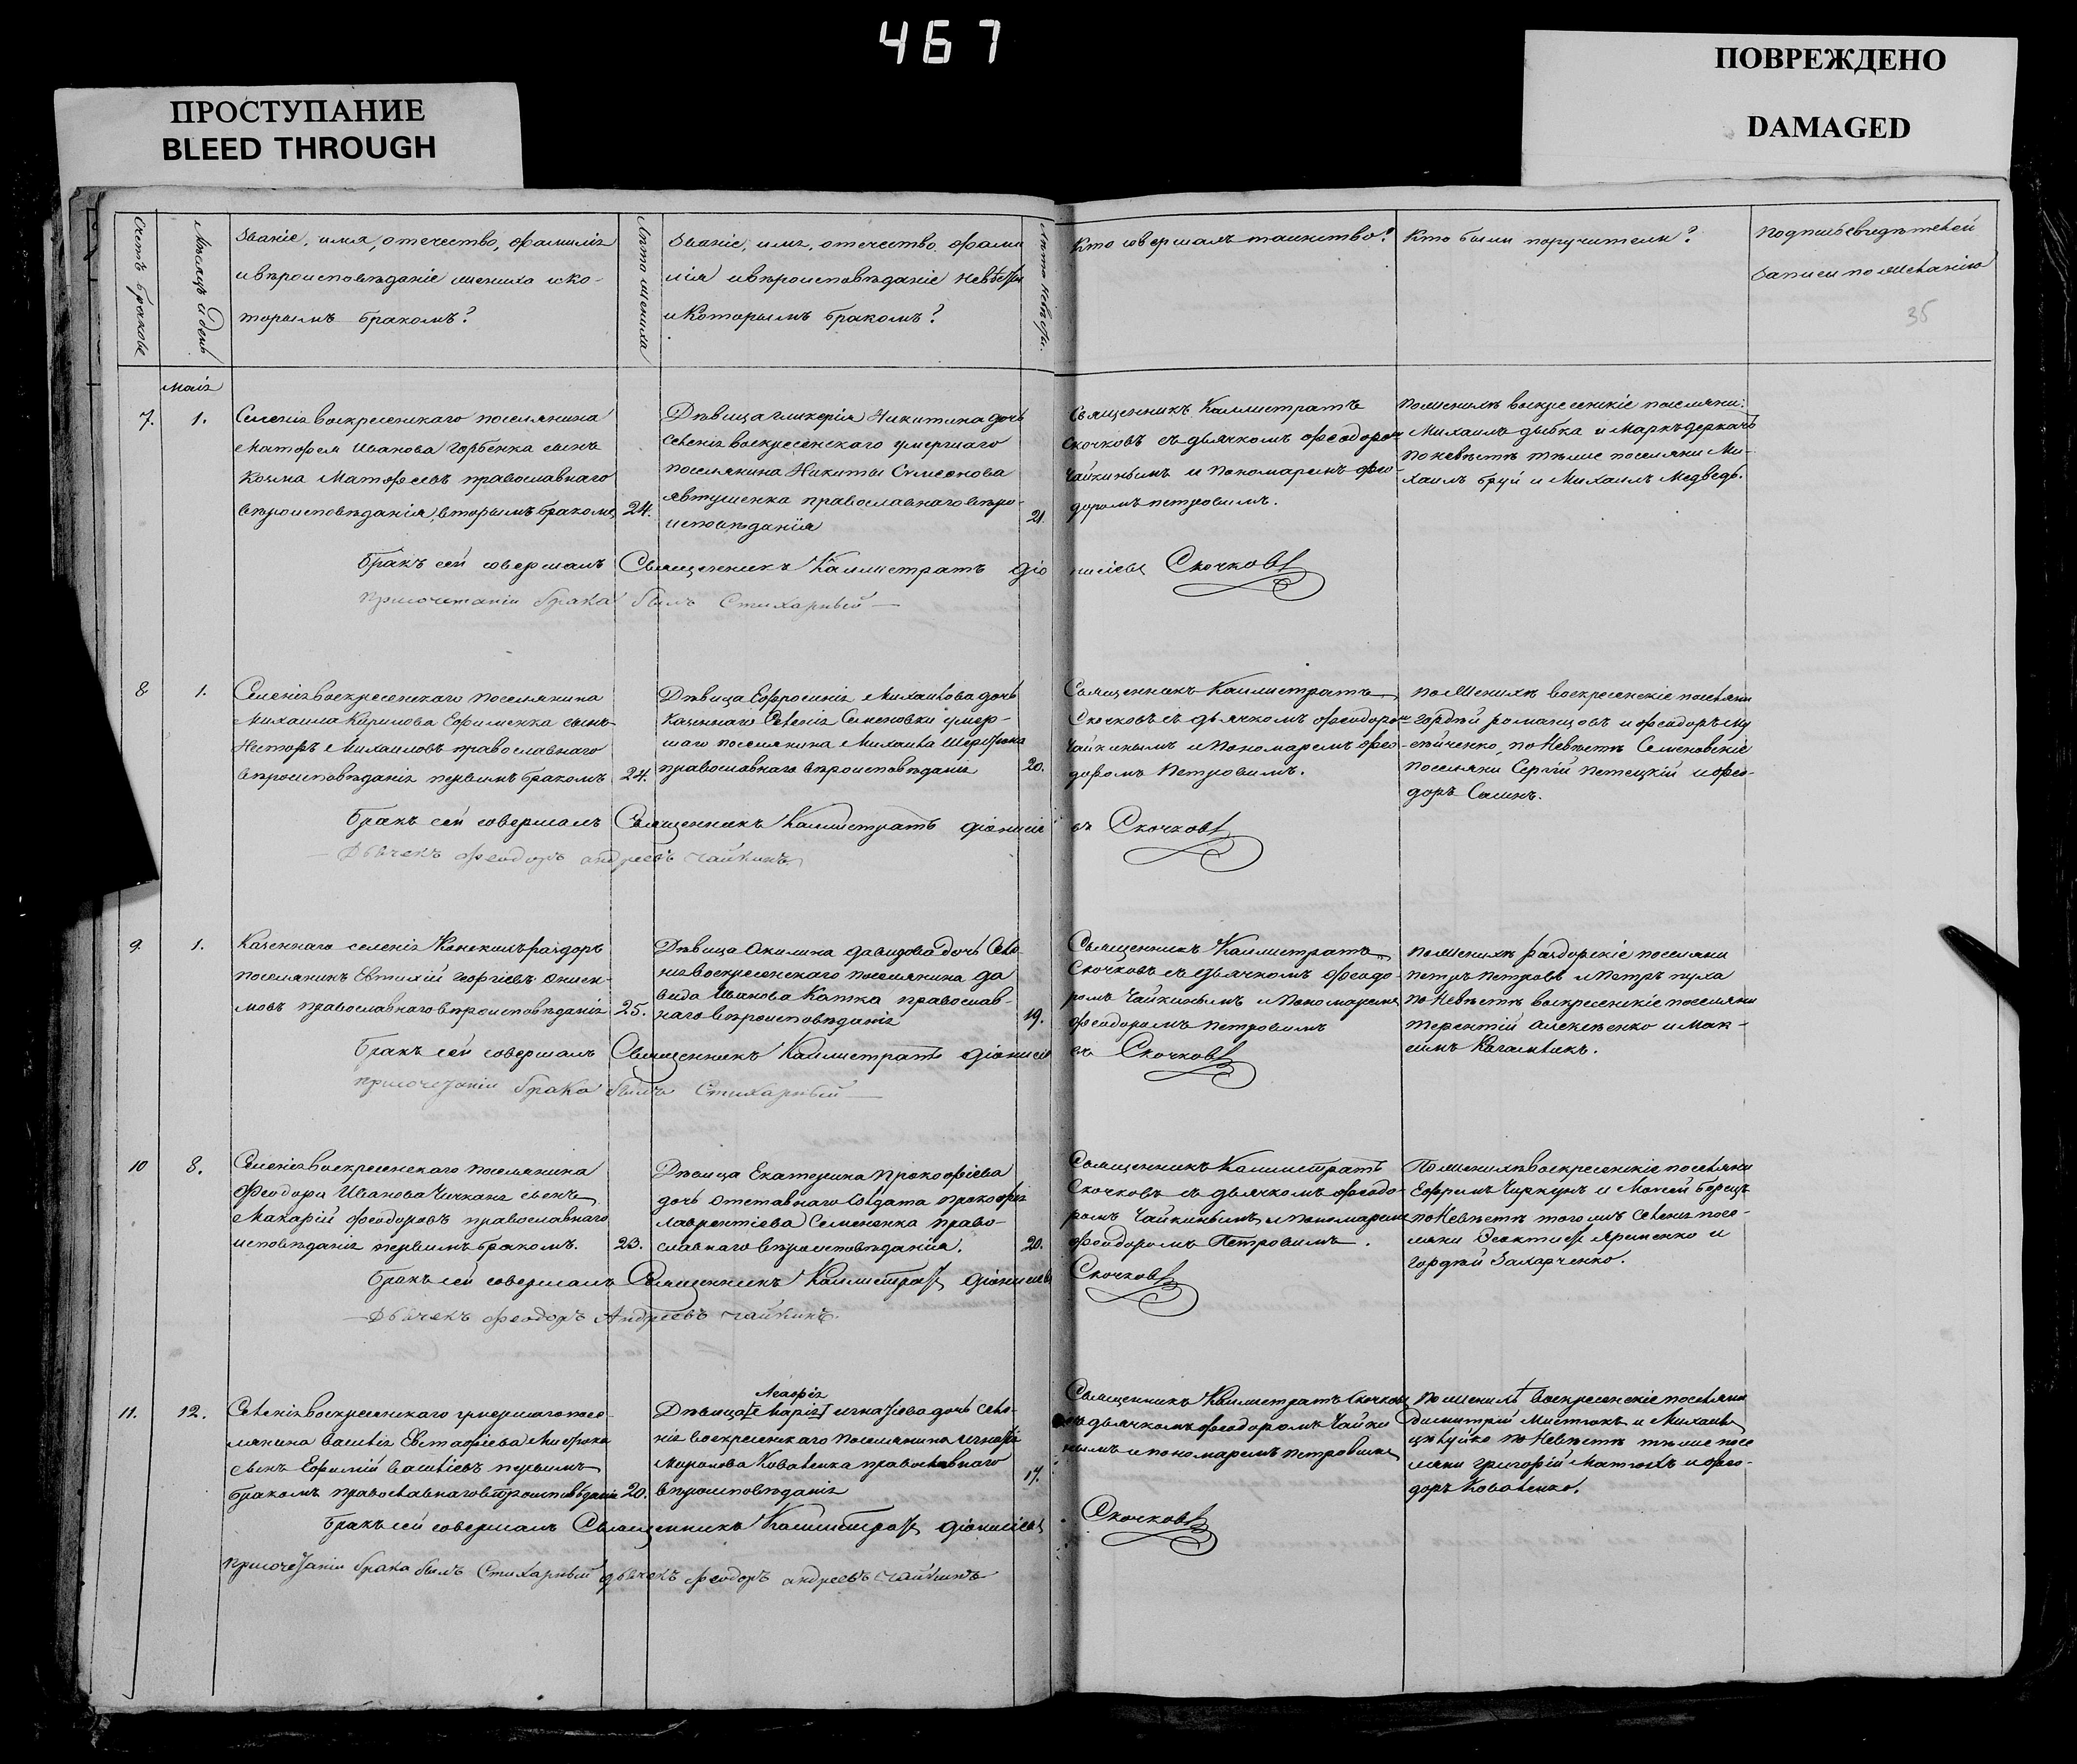 467
ПРОСТУПАНИЕ
BLEED THROUGH
ПОВРЕЖДЕНО
DAMAGED
Счетъ браковъ
Мѣсяцъ и день
Званіе, имя, отечество, фамилія
и вѣроисповѣданіе жениха и ко-
торымъ бракомъ?
Лѣто жениха
Званіе, имя, отечество, фами
лія и вѣроисповѣданіе невѣсты
и которымъ бракомъ?
Лѣто невѣсты
Кто совершалъ таинство?
Кто были поручители?
Подпись свидѣтелей
записи по желанію
35
маія
7.
1.
Селенія воскресенскаго поселянина
Матфея Иванова Горбенка сынъ
Козма Матфеевъ православнаго
вѣроисповѣданія, вторымъ бракомъ
24.
Дѣвица гликерія Никитина дочь
селенія воскресенскаго умершаго
поселянина Никиты Симеонова
Явтушенка православнаго вѣро-
исповѣданія
21.
Священникъ Каллистратъ
Скочковъ съ дьячкомъ феодоромъ
Чайкинымъ и пономаремъ фео-
доромъ петровымъ.
по женихѣ воскресенскіе поселяни:
Михаилъ дыбка и Маркъ деркачь
по невѣстѣ тѣже поселяни Ми-
хаилъ бруй и Михаилъ Медведь.
Бракъ сей совершалъ Священникъ Каллистратъ діо нисіевъ Скочковъ
при сочетаніи брака былъ Стихарный
8
1.
Селенія воскресенскаго поселянина
Михаила Кирилова Ефименка сынъ
Несторъ Михаиловъ православнаго
вѣроисповѣданія первымъ бракомъ
24.
Дѣвица Ефросинія Михаилова дочь
казеннаго селенія Семеновки умер-
шаго поселянина Михаила
православнаго вѣроисповѣданія
20.
Священникъ Каллистратъ
Скочковъ съ дьячкомъ феодоромъ
Чайкинымъ и пономаремъ фео-
доромъ Петровымъ.
по женихѣ воскресенскіе поселяни
гордѣй романцовъ и феодоръ
по невѣстѣ Семеновскіе
поселяни Сергій петецкій и фео-
доръ Салинъ.
Бракъ сей совершалъ Священникъ Каллистратъ діонисіе въ Скочковъ
Дьячекъ феодоръ андреевъ чайкинъ
9.
1.
Казеннаго селенія Конскихъ раздоръ
поселянинъ Евтихій георгіевъ Ониси-
мовъ православнаго вѣроисповѣданія
25.
Дѣвица Акилина давидова дочь Селе-
нія воскресенскаго поселянина да
вида Иванова Катка православ-
наго вѣроисповѣданія
19.
Священникъ Каллистратъ
Скочковъ съ дьячкомъ феодо-
ромъ Чайкинымъ и пономаремъ
феодоромъ петровымъ
по женихѣ раздорскіе поселяни
петръ петровъ и петръ пуха
по невѣстѣ воскресенскіе поселяни
терентій алексѣенко и Мак-
симъ
Бракъ сей совершалъ Священникъ Каллистратъ діонисіе въ Скочковъ
при сочетаніи брака былъ Стихарный
10
8.
Селенія воскресенскаго поселянина
Феодора Иванова Чичкана сынъ
Макарій феодоровъ православнаго
исповѣданія первымъ бракомъ.
23.
Дѣвица Екатерина Прокофіева
дочь отставнаго солдата прокофія
лаврентіева Семененка право-
славнаго вѣроисповѣданія.
20.
Священникъ Каллистратъ
Скочковъ съ дьячкомъ феодо-
ромъ Чайкинымъ и пономаремъ
феодоромъ Петровымъ.
По женихѣ воскресенскіе поселяни
Ефремъ Чиркунъ и Моисей борецъ
по невѣстѣ того жъ селенія посе-
ляни Яременко и
гордѣй Захарченко.
Бракъ сей совершалъ Священникъ Каллистратъ діонисіевъ Скочковъ
Дьячекъ феодоръ Андреевъ чайкинъ.
11.
12.
Селенія воскресенскаго умершаго посе-
лянина василія Евстафіева
сынъ Ефимій василіевъ первымъ
бракомъ православнаго вѣроисповѣданія
20.
Агафія
Дѣвица [Марія] игнатіева дочь селе-
нія воскресенскаго поселянина игнатія
Миронова Коваленка православнаго
вѣроисповѣданія
17.
Священникъ Каллистратъ Скочковъ
съ дьячкомъ феодоромъ Чайки
нымъ и пономаремъ петровымъ
по женихѣ воскресенскіе поселяни
димитрій Мистюкъ и Михаилъ
цѣлуйко по невѣстѣ тѣже посе
ляни григорій Матюхъ и фео-
доръ Коваленко.
Бракъ сей совершалъ Священникъ Каллистратъ діонисіевъ Скочковъ
при сочетаніи брака былъ Стихарный дьячекъ феодоръ андреевъ чайкинъ